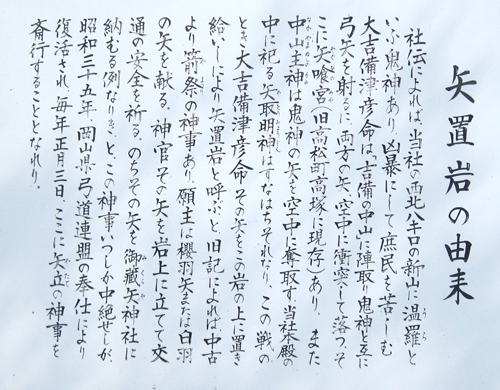 矢置岩の由来
社伝によれば、当社の西北八キロの新山に温羅と
いふ鬼神あり、凶暴にして庶民を苦しむ
大吉備津彦命は「吉備の中山」に陣取り鬼神と互に
弓矢を射るに、両方の矢、空中に衝突して落つ。そ
こに矢喰宮(旧高松町高塚に現存)あり、また
中山主神は鬼神の矢を空中に奪取す。当社本殿の
中に祀る矢取明神はすなはちそれなり。この戦の
とき大吉備津彦命その矢をこの岩の上に置き
給いしにより矢置岩と呼ぶと。旧記によれば、中古
より箭祭の神事あり、願主は櫻羽矢または白羽
の矢を献る。神官その矢を岩上に立てて交
通の安全を祈る。のちその矢を御蔵矢神社に
納むる例なりき、と。この神事いつしか中絶せしが
昭和三十五年、岡山県弓道連盟の奉仕により
復活され、毎年正月三日、ここに矢立の神事を
斎行することとなれり。